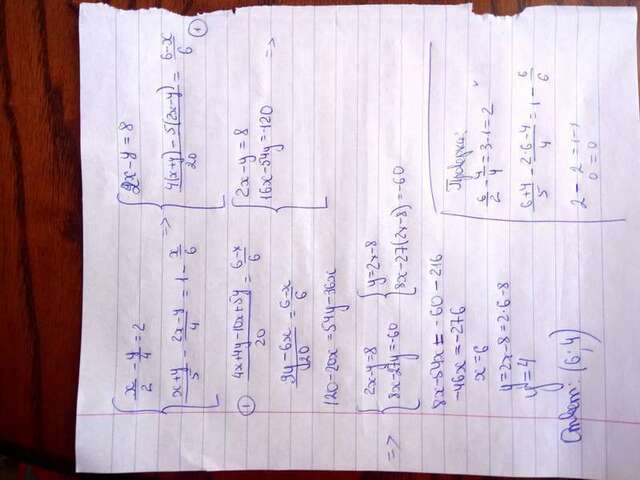 x/2 - y/4 = 2
(x+y)/5 - (2x-y)/4 = 1 - x/6
=>
2x-y = 8
(4(x+y) - 5(2x-y))/20 = (6-x)/6
①
① (4x+4y-10x+5y)/20 = (6-x)/6
(9y-6x)/20 = (6-x)/6
120-20x = 54y-36x
2x-y = 8
16x-54y = -120
=>
=> 2x-y = 8
8x-27y = -60
y = 2x-8
8x-27(2x-8) = -60
8x-54x = -60-216
-46x = -276
x = 6
y = 2x-8 = 2·6-8
y = 4
Ответ: (6; 4)
Проверка:
6/2 - 4/4 = 3-1 = 2
(6+4)/5 - (2·6-4)/4 = 1 - 6/6
2 - 2 = 1-1
0 = 0